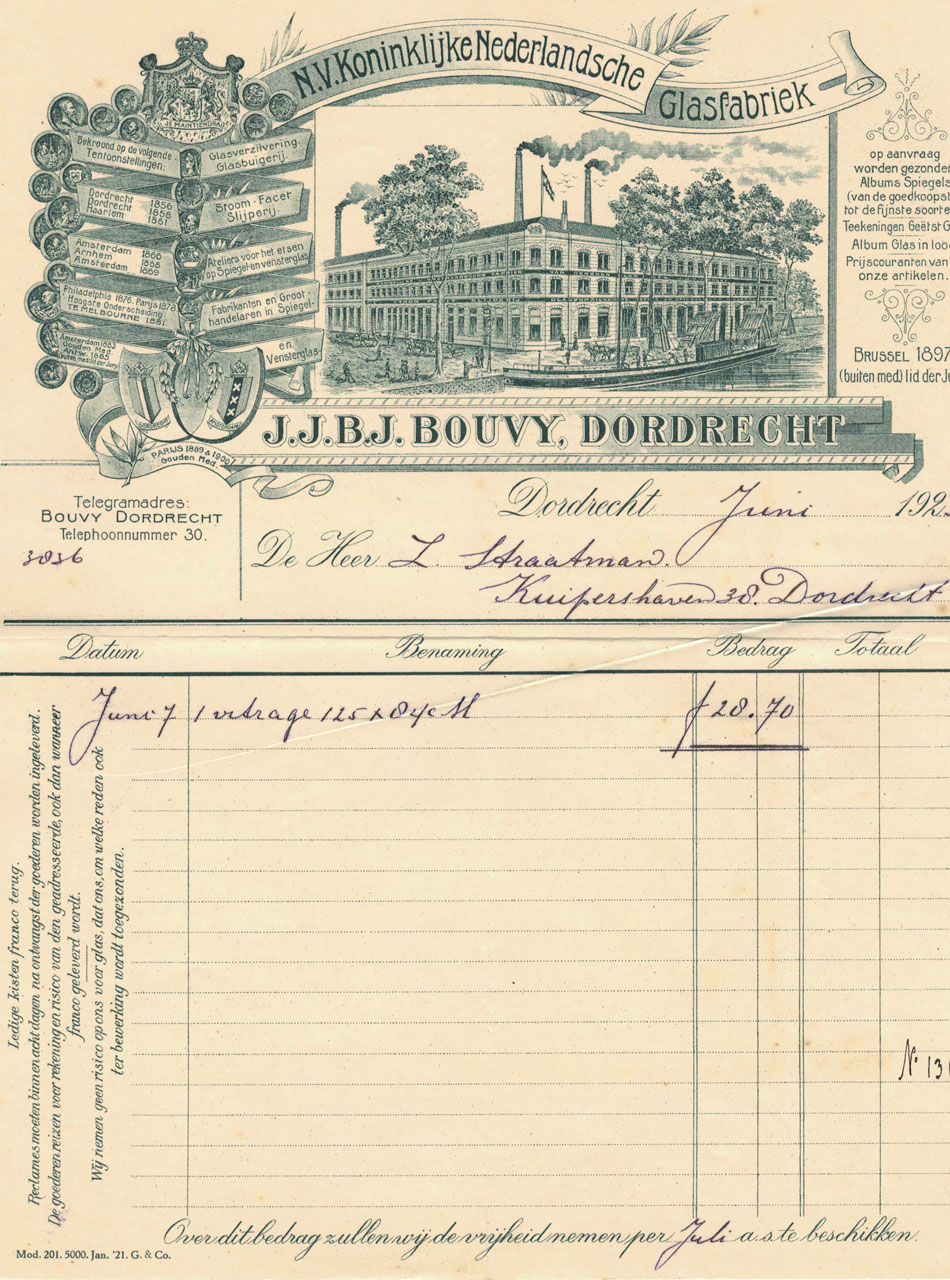 N.V. Koninklijke Nederlandsche
Glasfabriek
JE MAINTIENDRAI
Bekroond op de volgende
Tentoonstellingen:
Glasverzilvering
Glasbuigerij.
Dordrecht 1856
Dordrecht 1858
Haarlem 1861
Stoom-Facet
Slijperij.
Amsterdam 1866
Arnhem 1868
Amsterdam 1869
Ateliers voor het etsen
op Spiegel-en vensterglas
Philadelphia 1876. Parijs 1878
Hoogste Onderscheiding
TE MELBOURNE 1881.
Fabrikanten en Groot
handelaren in Spiegel-
Amsterdam 1883
Gouden Med.
Antw. 1885
en
Vensterglas
DORDRECHT
AMSTERDAM
PARIJS 1889 & 1900
Gouden Med.
op aanvraag
worden gezonden
Albums Spiegels
(van de goedkoopst
tot de fijnste soorte
Teekeningen Geëtst G
Album Glas in loo
Prijscouranten van
onze artikelen.
BRUSSEL 1897
(buiten med) lid der Ju
J.J.B.J. BOUVY, DORDRECHT
Telegramadres:
BOUVY DORDRECHT
Telephoonnummer 30.
3836
Dordrecht Juni 192
De Heer L. Straatman.
Kuipershaven 38. Dordrecht
Datum Benaming Bedrag Totaal
Juni 7 1 vitrage 125 x 84 cM f 28.70
Ledige kisten franco terug.
Reclames moeten binnen acht dagen na ontvangst der goederen worden ingeleverd.
De goederen reizen voor rekening en risico van den geadresseerde, ook dan wanneer
franco geleverd wordt.
Wij nemen geen risico op ons voor glas, dat ons, om welke reden ook
ter bewerking wordt toegezonden.
N. 131
Over dit bedrag zullen wij de vrijheid nemen per Juli a.s. te beschikken.
Mod. 201. 5000. Jan. '21. G. & Co.